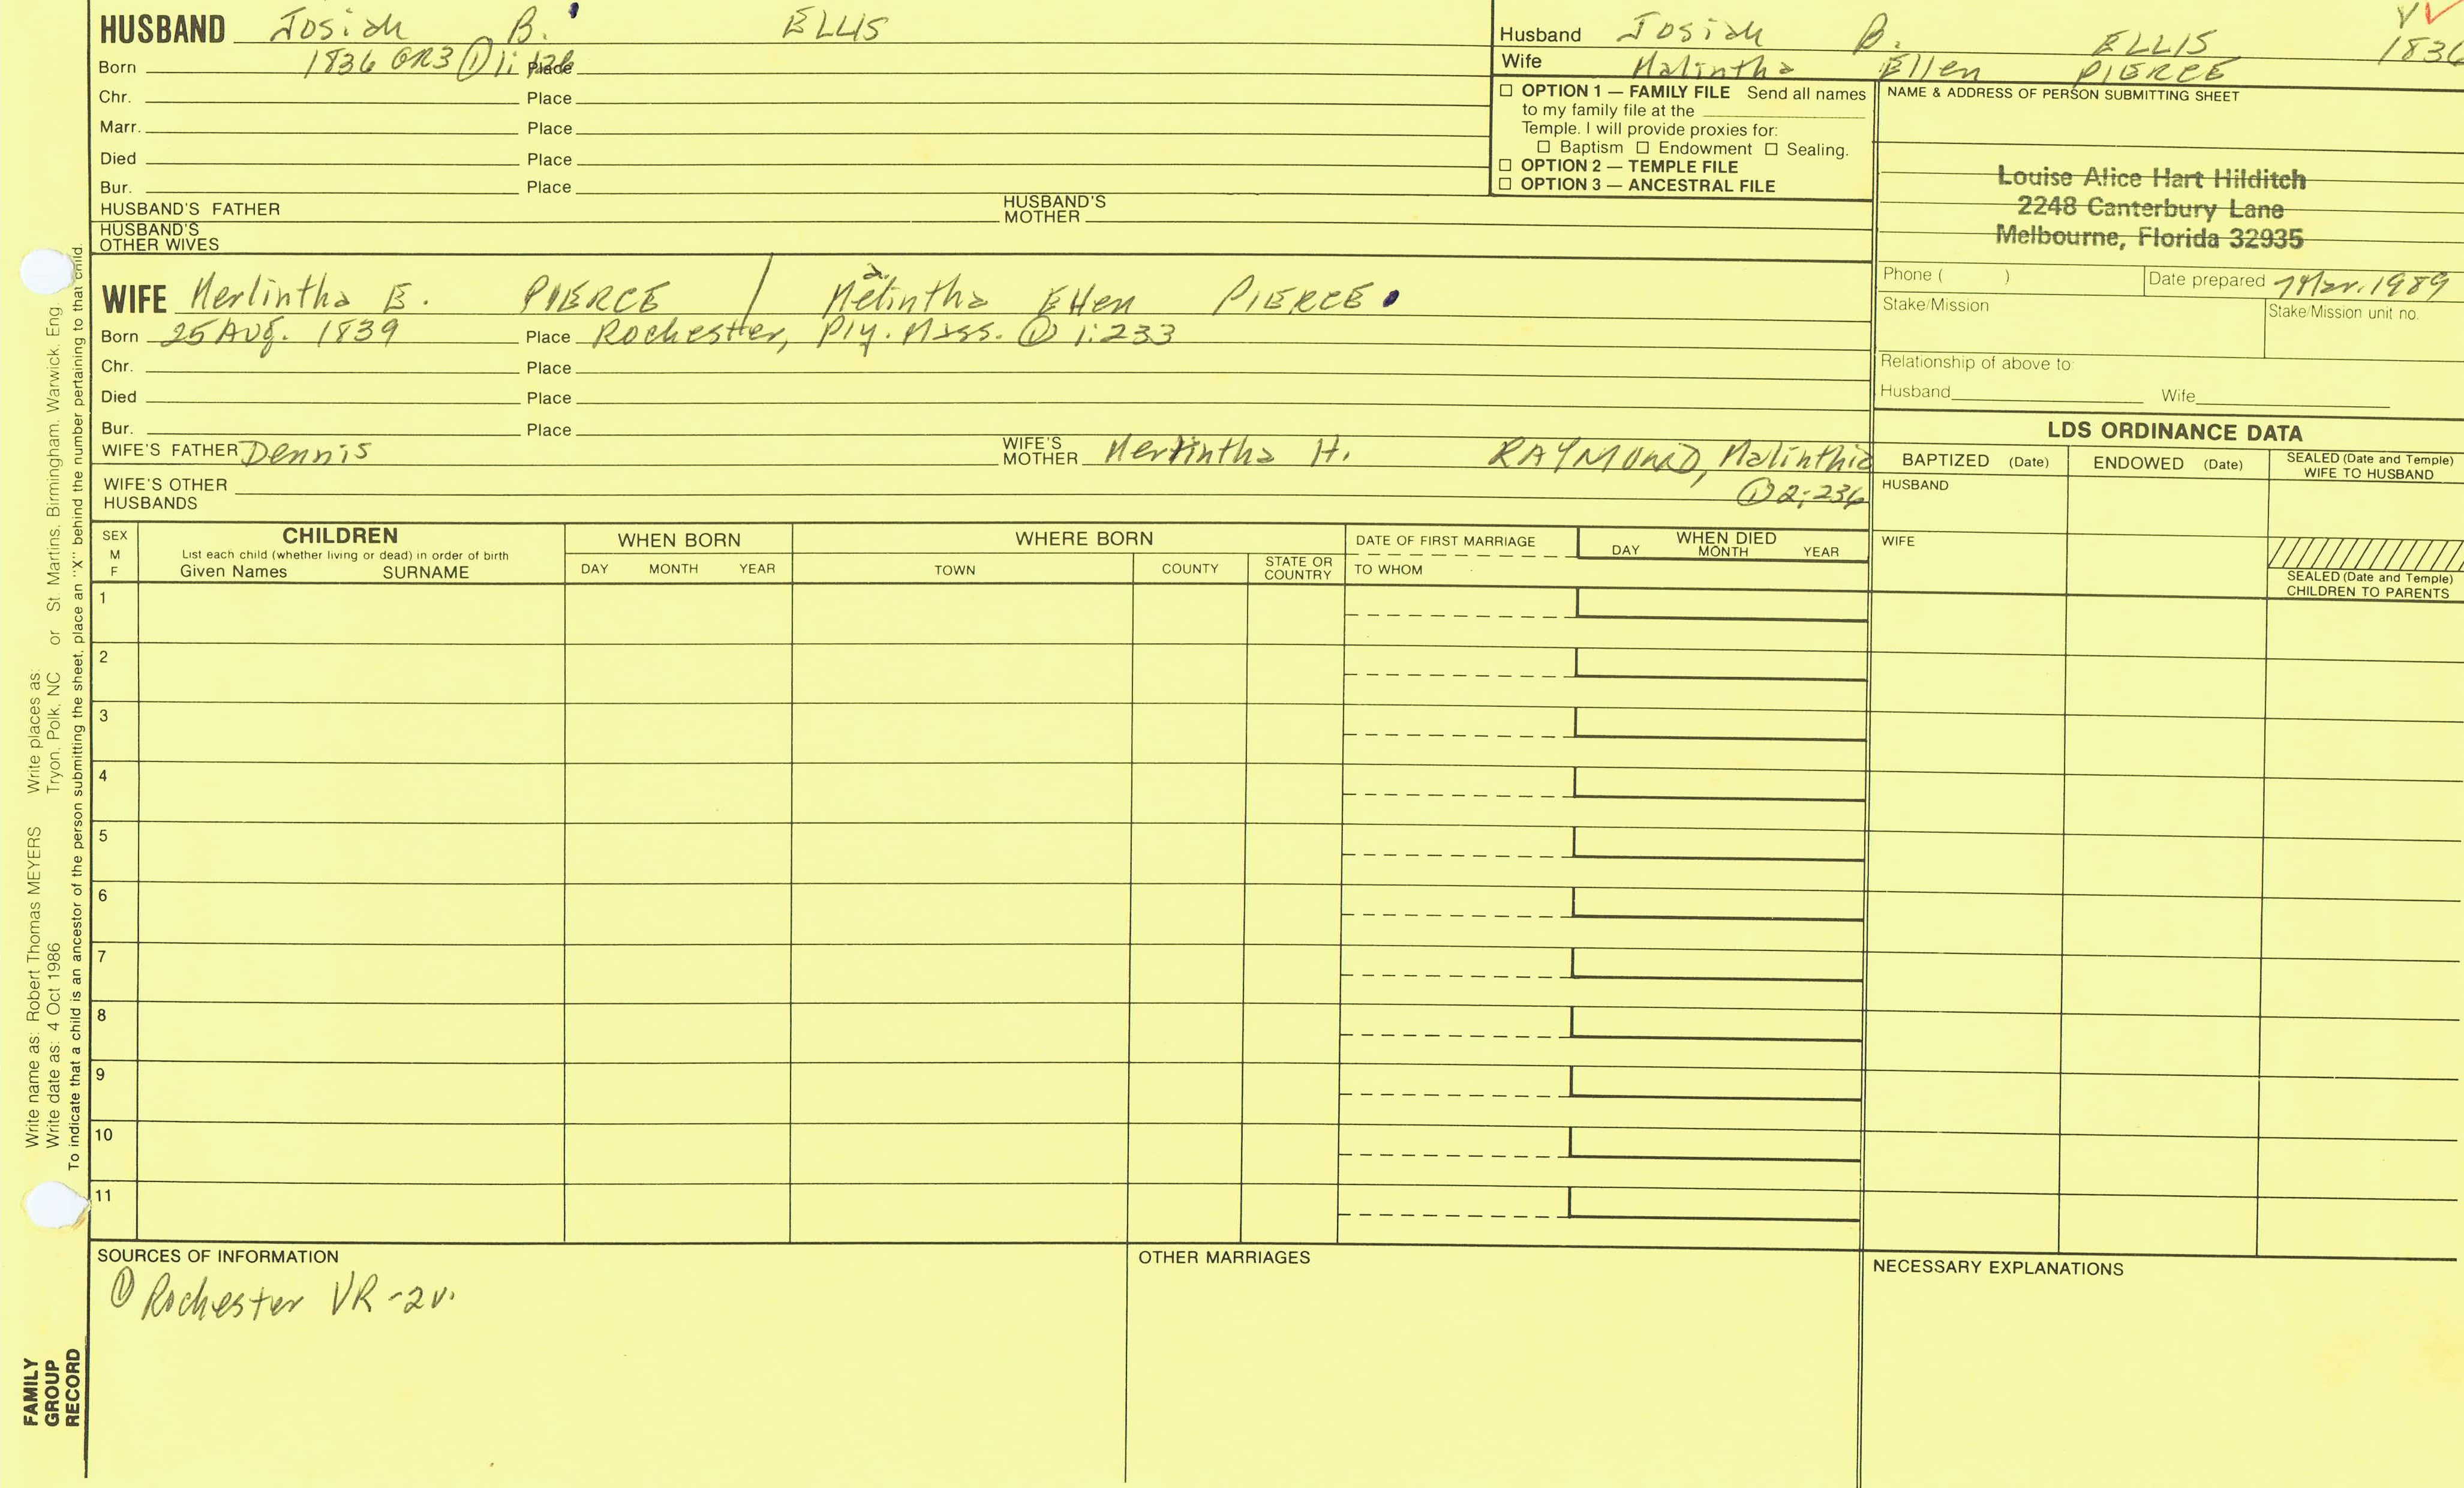 HUSBAND Josiah B. ELLIS
Born 1836 GR3 ① 1: Place
Chr. Place
Marr. Place
Died Place
Bur. Place
HUSBAND'S FATHER HUSBAND'S MOTHER
HUSBAND'S OTHER WIVES
Husband Josiah B. ELLIS 1836
Wife Malintha Ellen PIERCE
☐ OPTION 1 — FAMILY FILE Send all names
to my family file at the
Temple. I will provide proxies for:
☐ Baptism ☐ Endowment ☐ Sealing.
☐ OPTION 2 — TEMPLE FILE
☐ OPTION 3 — ANCESTRAL FILE
NAME & ADDRESS OF PERSON SUBMITTING SHEET
Louise Alice Hart Hilditch
2248 Canterbury Lane
Melbourne, Florida 32935
Phone ( ) Date prepared 7 Mar. 1989
Stake/Mission Stake/Mission unit no.
Relationship of above to:
Husband Wife
WIFE Merlintha E. PIERCE / Melintha Ellen PIERCE
Born 25 Aug. 1839 Place Rochester, Ply. Mass. ① 1:233
Chr. Place
Died Place
Bur. Place
WIFE'S FATHER Dennis WIFE'S MOTHER Merlintha H. RAYMOND, Malinthia
① 2:236
WIFE'S OTHER HUSBANDS
LDS ORDINANCE DATA
BAPTIZED (Date) ENDOWED (Date) SEALED (Date and Temple) WIFE TO HUSBAND
HUSBAND
WIFE
SEALED (Date and Temple) CHILDREN TO PARENTS
SEX M F
CHILDREN
List each child (whether living or dead) in order of birth
Given Names SURNAME
WHEN BORN
DAY MONTH YEAR
WHERE BORN
TOWN COUNTY STATE OR COUNTRY
DATE OF FIRST MARRIAGE
TO WHOM
WHEN DIED
DAY MONTH YEAR
1
2
3
4
5
6
7
8
9
10
11
SOURCES OF INFORMATION
① Rochester VR - 2v.
OTHER MARRIAGES
NECESSARY EXPLANATIONS
Write name as: Robert Thomas MEYERS Write places as:
Write date as: 4 Oct 1986 Tryon, Polk, NC or St. Martins, Birmingham, Warwick, Eng.
To indicate that a child is an ancestor of the person submitting the sheet, place an "X" behind the number pertaining to that child.
FAMILY
GROUP
RECORD